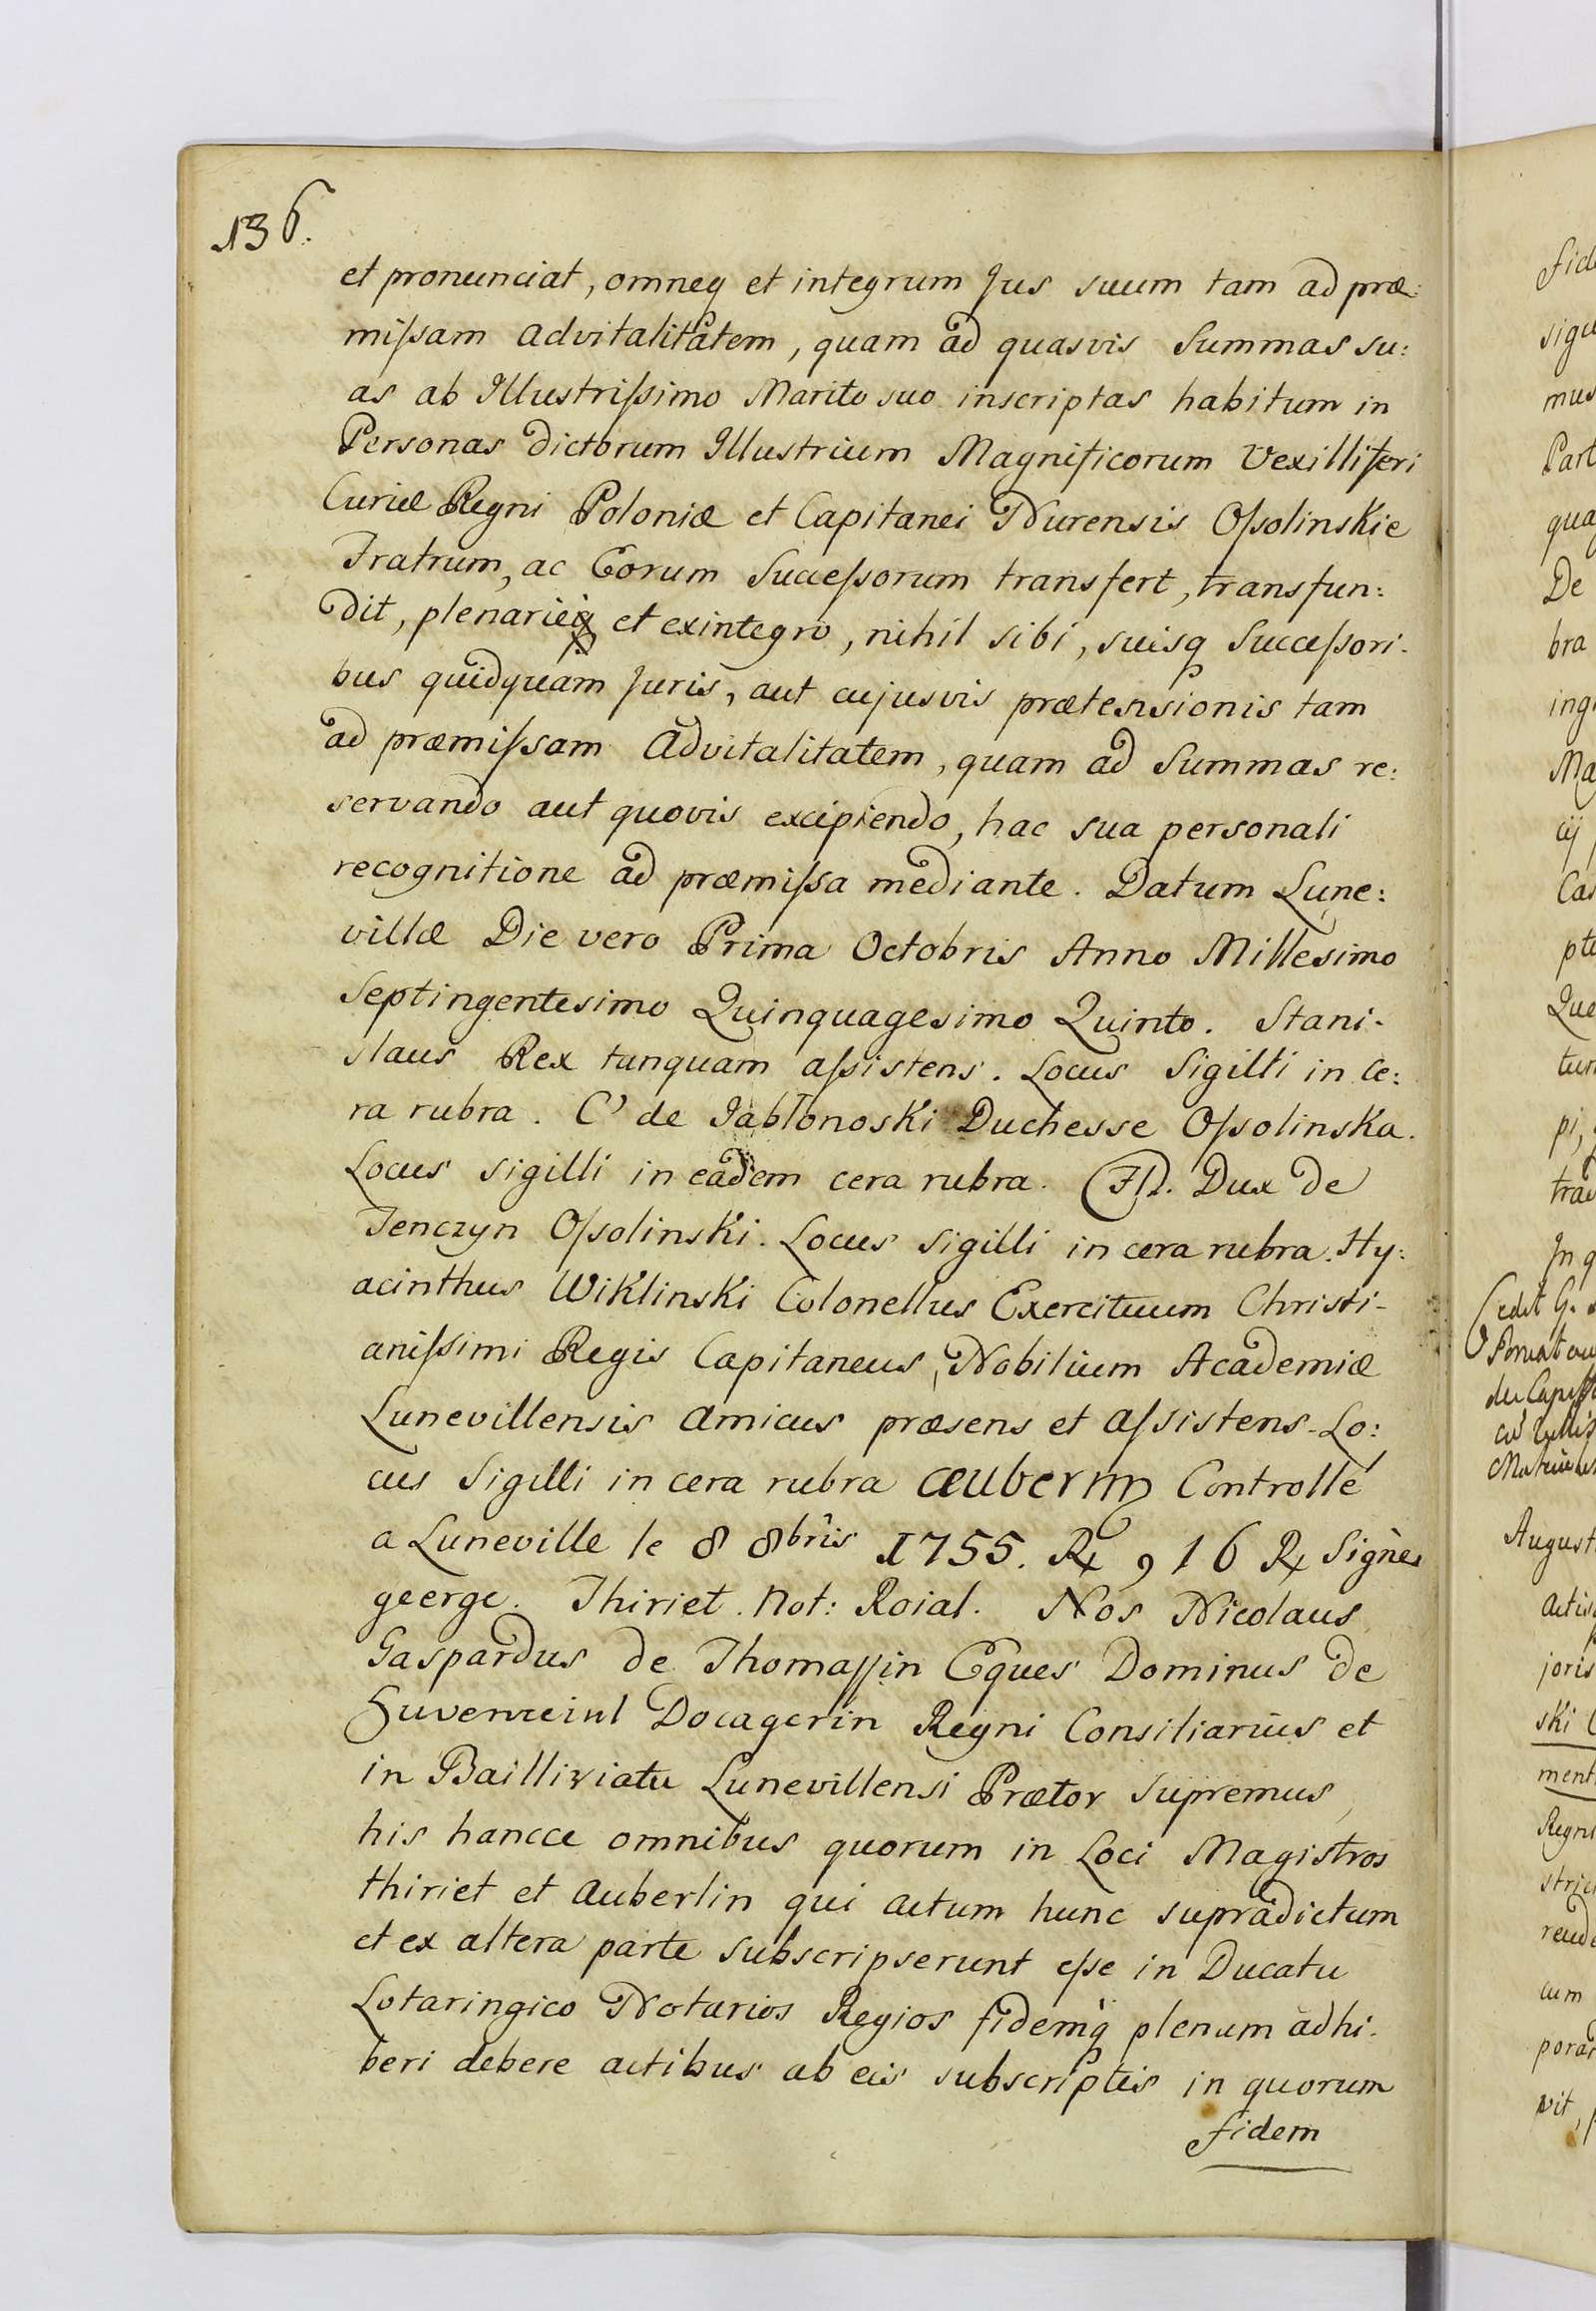 136.
et pronunciat, omneq et integrum Jus suum tam ad præ:
miſsam advitalitatem, quam ad quasvis Summas su:
as ab Illustriſsimo Marito suo inscriptas habitum in
Personas dictorum Illustrium Magnificorum Vexilliferi
Curiæ Regni Poloniæ et Capitanei Nurensis Oſsolinskie
Fratrum, ac Eorum Succeſsorum transfert, transfun:
dit, plenarieq et exintegro, nihil sibi, suisq Succeſsori-
bus quidquam Juris, aut cujusvis prætensionis tam
ad præmiſsam advitalitatem, quam ad Summas re:
servando aut quovis excipiendo, hac sua personali
recognitione ad præmiſsa mediante. Datum Lune:
villæ Die vero Prima Octobris Anno Millesimo
Septingentesimo Quinquagesimo Quinto. Stani-
slaus Rex tanquam aſsistens. Locus Sigilli in Ce:
ra rubra. C' de Jabłonoski Duchesse Oſsolinska.
Locus sigilli in eadem cera rubra. F. D. Dux de
Tenczyn Oſsolinski. Locus sigilli in cera rubra. Hy:
acinthus Wiklinski Colonellus Exercituum Christi-
aniſsimi Regis Capitaneus, Nobilium Academiæ
Lunevillensis amicus præsens et aſsistens. Lo:
cus Sigilli in cera rubra Controllé
a Luneville le 8 8bris 1755. Rx 9 16 Rx Signès
geerge. Thiriet. Not: Roial. Nos Nicolaus
Gaspardus de Thomaſsin Eques Dominus de
Docagerin Regni Consiliarius et
in Bailliviatu Lunevillensi Prætor Supremus,
his hancce omnibus quorum in Loci Magistros
thiriet et Auberlin qui actum hunc supradictum
et ex altera parte subscripserunt eſse in Ducatu
Lotaringico Notarios Regios fidemq plenam adhi-
beri debere actibus ab eis subscriptis in quorum
fidem